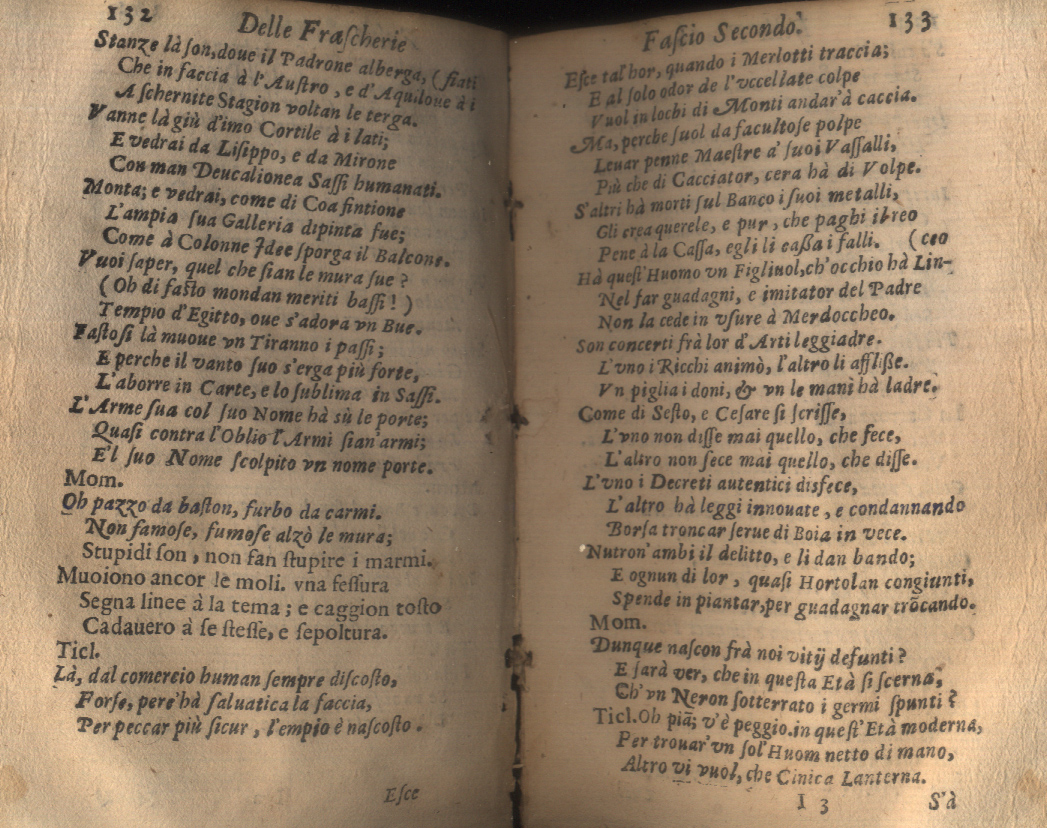 132
Delle Fraſcherie
Stanze là ſon, doue il Padrone alberga, (ſiati
Che in faccia à l'Auſtro, e d'Aquiloue à i
A ſchernite Stagion voltan le terga.
Vanne là giù d'imo Cortile à i lati;
E vedrai da Liſippo, e da Mirone
Con man Deucalionea Saſſi humanati.
Monta; e vedrai, come di Coa fintione
L'ampia ſua Galleria dipinta fue;
Come à Colonne Idee ſporga il Balcone.
Vuoi ſaper, quel che ſian le mura ſue?
(Oh di faſto mondan meriti baſſi!)
Tempio d'Egitto, oue s'adora vn Bue.
Faſtoſi là muoue vn Tiranno i paſſi;
E perche il vanto ſuo s'erga più forte,
L'aborre in Carte, e lo ſublima in Saſſi.
L'Arme ſua col ſuo Nome hà sù le porte;
Quaſi contra l'Oblio l'Armi ſian'armi;
E'l ſuo Nome ſcolpito vn nome porte.
Mom.
Oh pazzo da baſton, furbo da carmi.
Non famoſe, fumoſe alzò le mura;
Stupidi ſon, non fan ſtupire i marmi.
Muoiono ancor le moli. vna feſſura
Segna linee à la tema; e caggion toſto
Cadauero à ſe ſteſſe, e ſepoltura.
Ticl.
Là, dal comercio human ſempre diſcoſto,
Forſe, perc'hà ſaluatica la faccia,
Per peccar più ſicur, l'empio è naſcoſto.
Eſce
Faſcio Secondo.
133
Eſce tal'hor, quando i Merlotti traccia;
E al ſolo odor de l'vccellate colpe
Vuol in lochi di Monti andar'à caccia.
Ma, perche ſuol da facultoſe polpe
Leuar penne Maeſtre a' ſuoi Vaſſalli,
Più che di Cacciator, cera hà di Volpe.
S'altri hà morti ſul Banco i ſuoi metalli,
Gli crea querele, e pur, che paghi il reo
Pene à la Caſſa, egli li caßa i falli. (ceo
Hà queſt'Huomo vn Figliuol, ch'occhio hà Lin-
Nel far guadagni, e imitator del Padre
Non la cede in vſure à Merdoccheo.
Son concerti frà lor d'Arti leggiadre.
L'vno i Ricchi animò, l'altro li affliße.
Vn piglia i doni, & vn le mani hà ladre.
Come di Seſto, e Ceſare ſi ſcriſſe,
L'vno non diſſe mai quello, che fece,
L'altro non fece mai quello, che diſſe.
L'vno i Decreti autentici disfece,
L'altro hà leggi innouate, e condannando
Borſa troncar ſerue di Boia in vece.
Nutron'ambi il delitto, e li dan bando;
E ognun di lor, quaſi Hortolan congiunti,
Spende in piantar, per guadagnar trõcando.
Mom.
Dunque naſcon frà noi vitij defunti?
E ſarà ver, che in queſta Età ſi ſcerna,
Ch'vn Neron ſotterrato i germi ſpunti?
Ticl. Oh piã; v'è peggio. in queſt'Età moderna,
Per trouar'vn ſol'Huom netto di mano,
Altro vi vuol, che Cinica Lanterna.
I 3
S'à